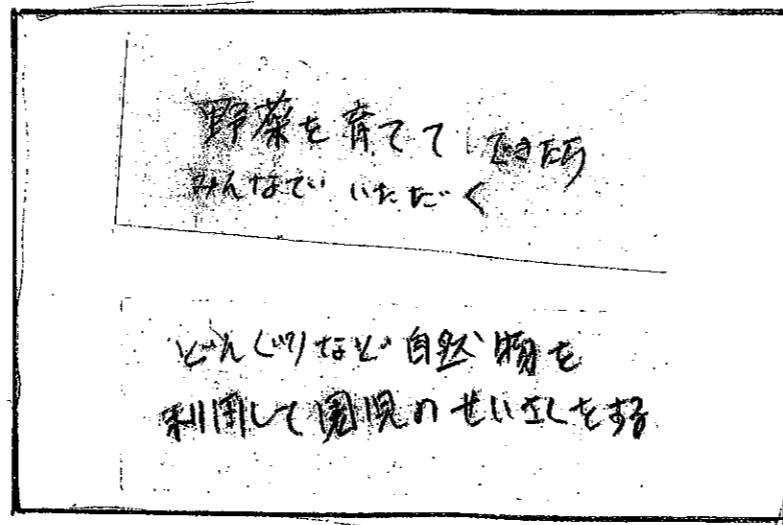 野菜を育てて できたら
みんなで いただく
どんぐりなど 自然物を
利用して園児の せいさくをする